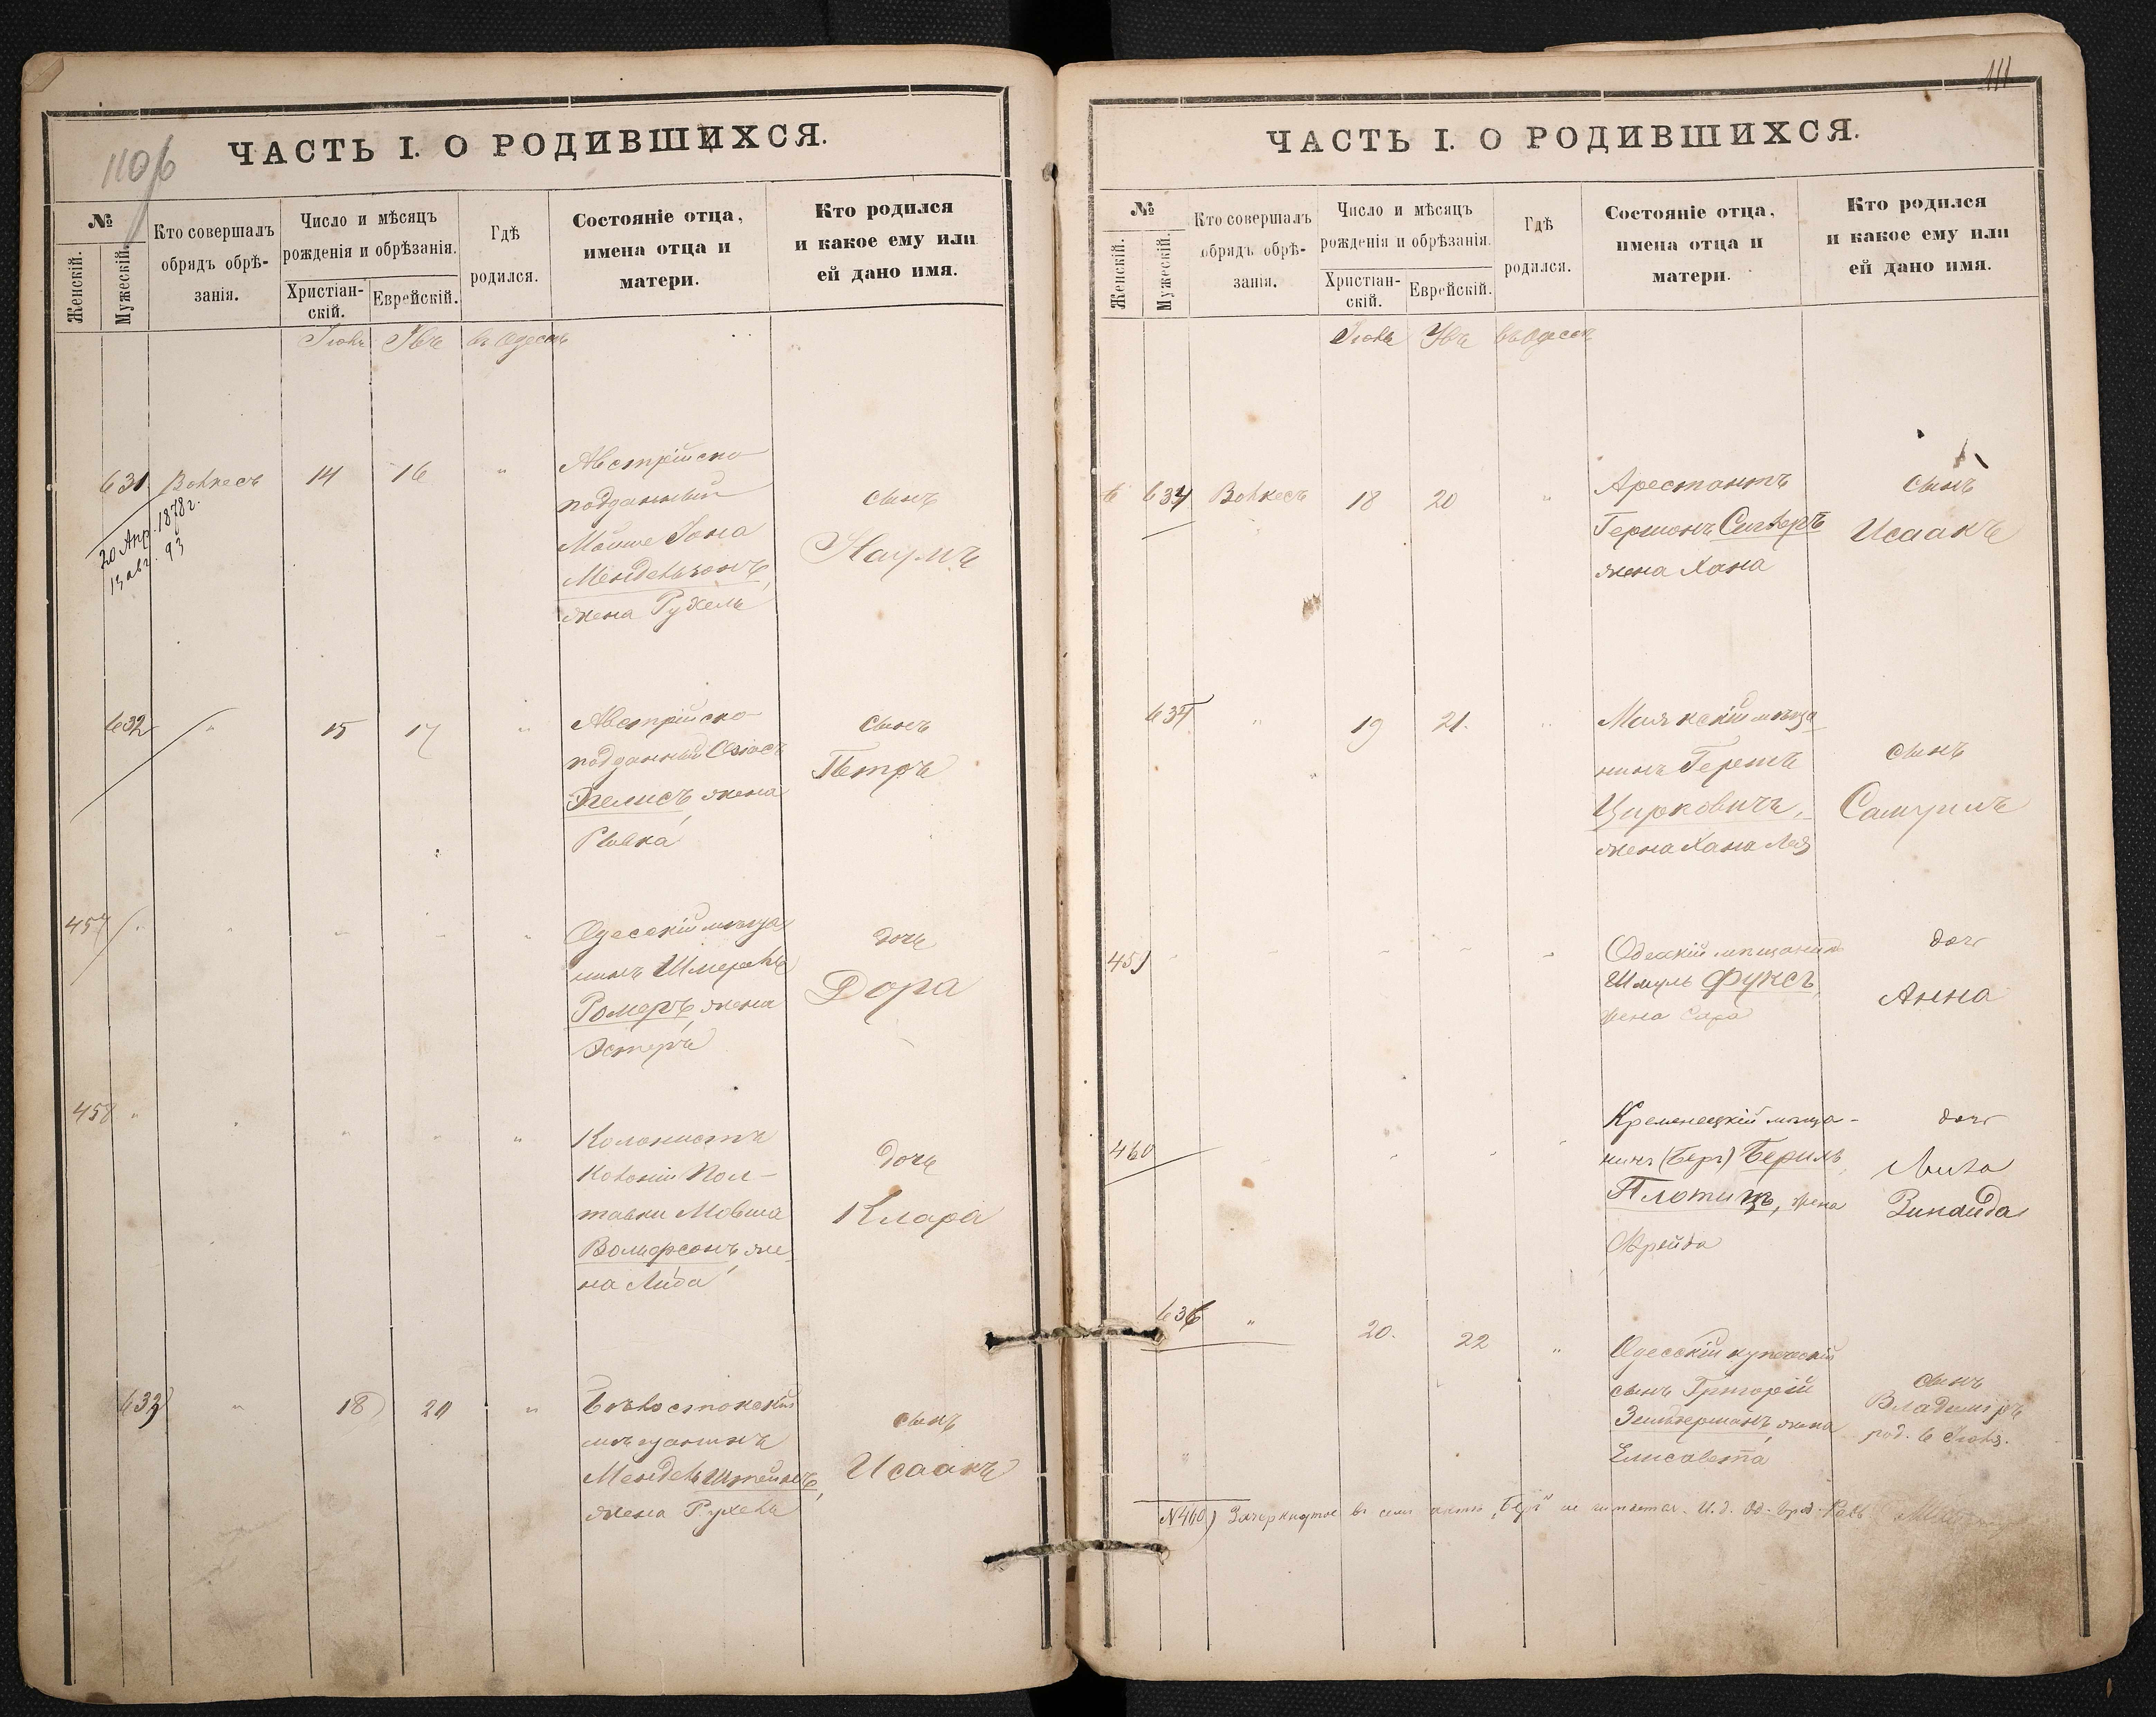 110б
ЧАСТЬ I. О РОДИВШИХСЯ.
№
Женскій.
Мужескій.
Кто совершалъ
обрядъ обрѣ-
занія.
Число и мѣсяцъ
рожденія и обрѣзанія.
Христіан-
скій.
Еврейскій.
Гдѣ
родился.
Состояніе отца,
имена отца и
матери.
Кто родился
и какое ему или
ей дано имя.
въ Одессѣ
631 Волкесъ 14 16 "
20 Апр. 1878г.
13 авг. 93
Австрійско
подданный
Мойше Іона
Мендельзонъ,
жена Рухель
сынъ
Наумъ
632 " 15 17 "
Австрійско
подданный
жена
Ривка
сынъ
Петръ
457 "
Одесскій мѣща
нинъ Шмерель
Ромеръ, жена
Эстеръ
дочь
Дора
458 "
Колонистъ
Колоніи Пол-
тавки Мовша
Вольфсонъ, же
на Либа
дочь
Клара
633 " 18 20 "
Бѣлостокскій
мѣщанинъ
Мендель Штейнъ,
жена Рухель
сынъ
Исаакъ
111
ЧАСТЬ I. О РОДИВШИХСЯ.
№
Женскій.
Мужескій.
Кто совершалъ
обрядъ обрѣ-
занія.
Число и мѣсяцъ
рожденія и обрѣзанія.
Христіан-
скій.
Еврейскій.
Гдѣ
родился.
Состояніе отца,
имена отца и
матери.
Кто родился
и какое ему или
ей дано имя.
въ Одессѣ
634 Волкесъ 18 20 "
Арестантъ
Гершонъ
жена Хана
сынъ
Исаакъ
19 21. "
Маякскій мѣща
нинъ Гершъ
Цирковичъ,
жена Хана Лея
сынъ
Самуилъ
Одесскій мѣщанинъ
Шмуль Фуксъ,
жена Сара
дочь
Анна
460
Кременецкій мѣща-
нинъ (Беръ) Бериль
жена
Фрейда
дочь
Зинаида
636 " 20. 22 "
Одесскій купеческій
сынъ Григорій
Зильберманъ, жена
Елисавета
сынъ
Владиміръ
№460) Зачеркнутое въ семъ актѣ „Беръ" не читается. И. д. Од. Рав.